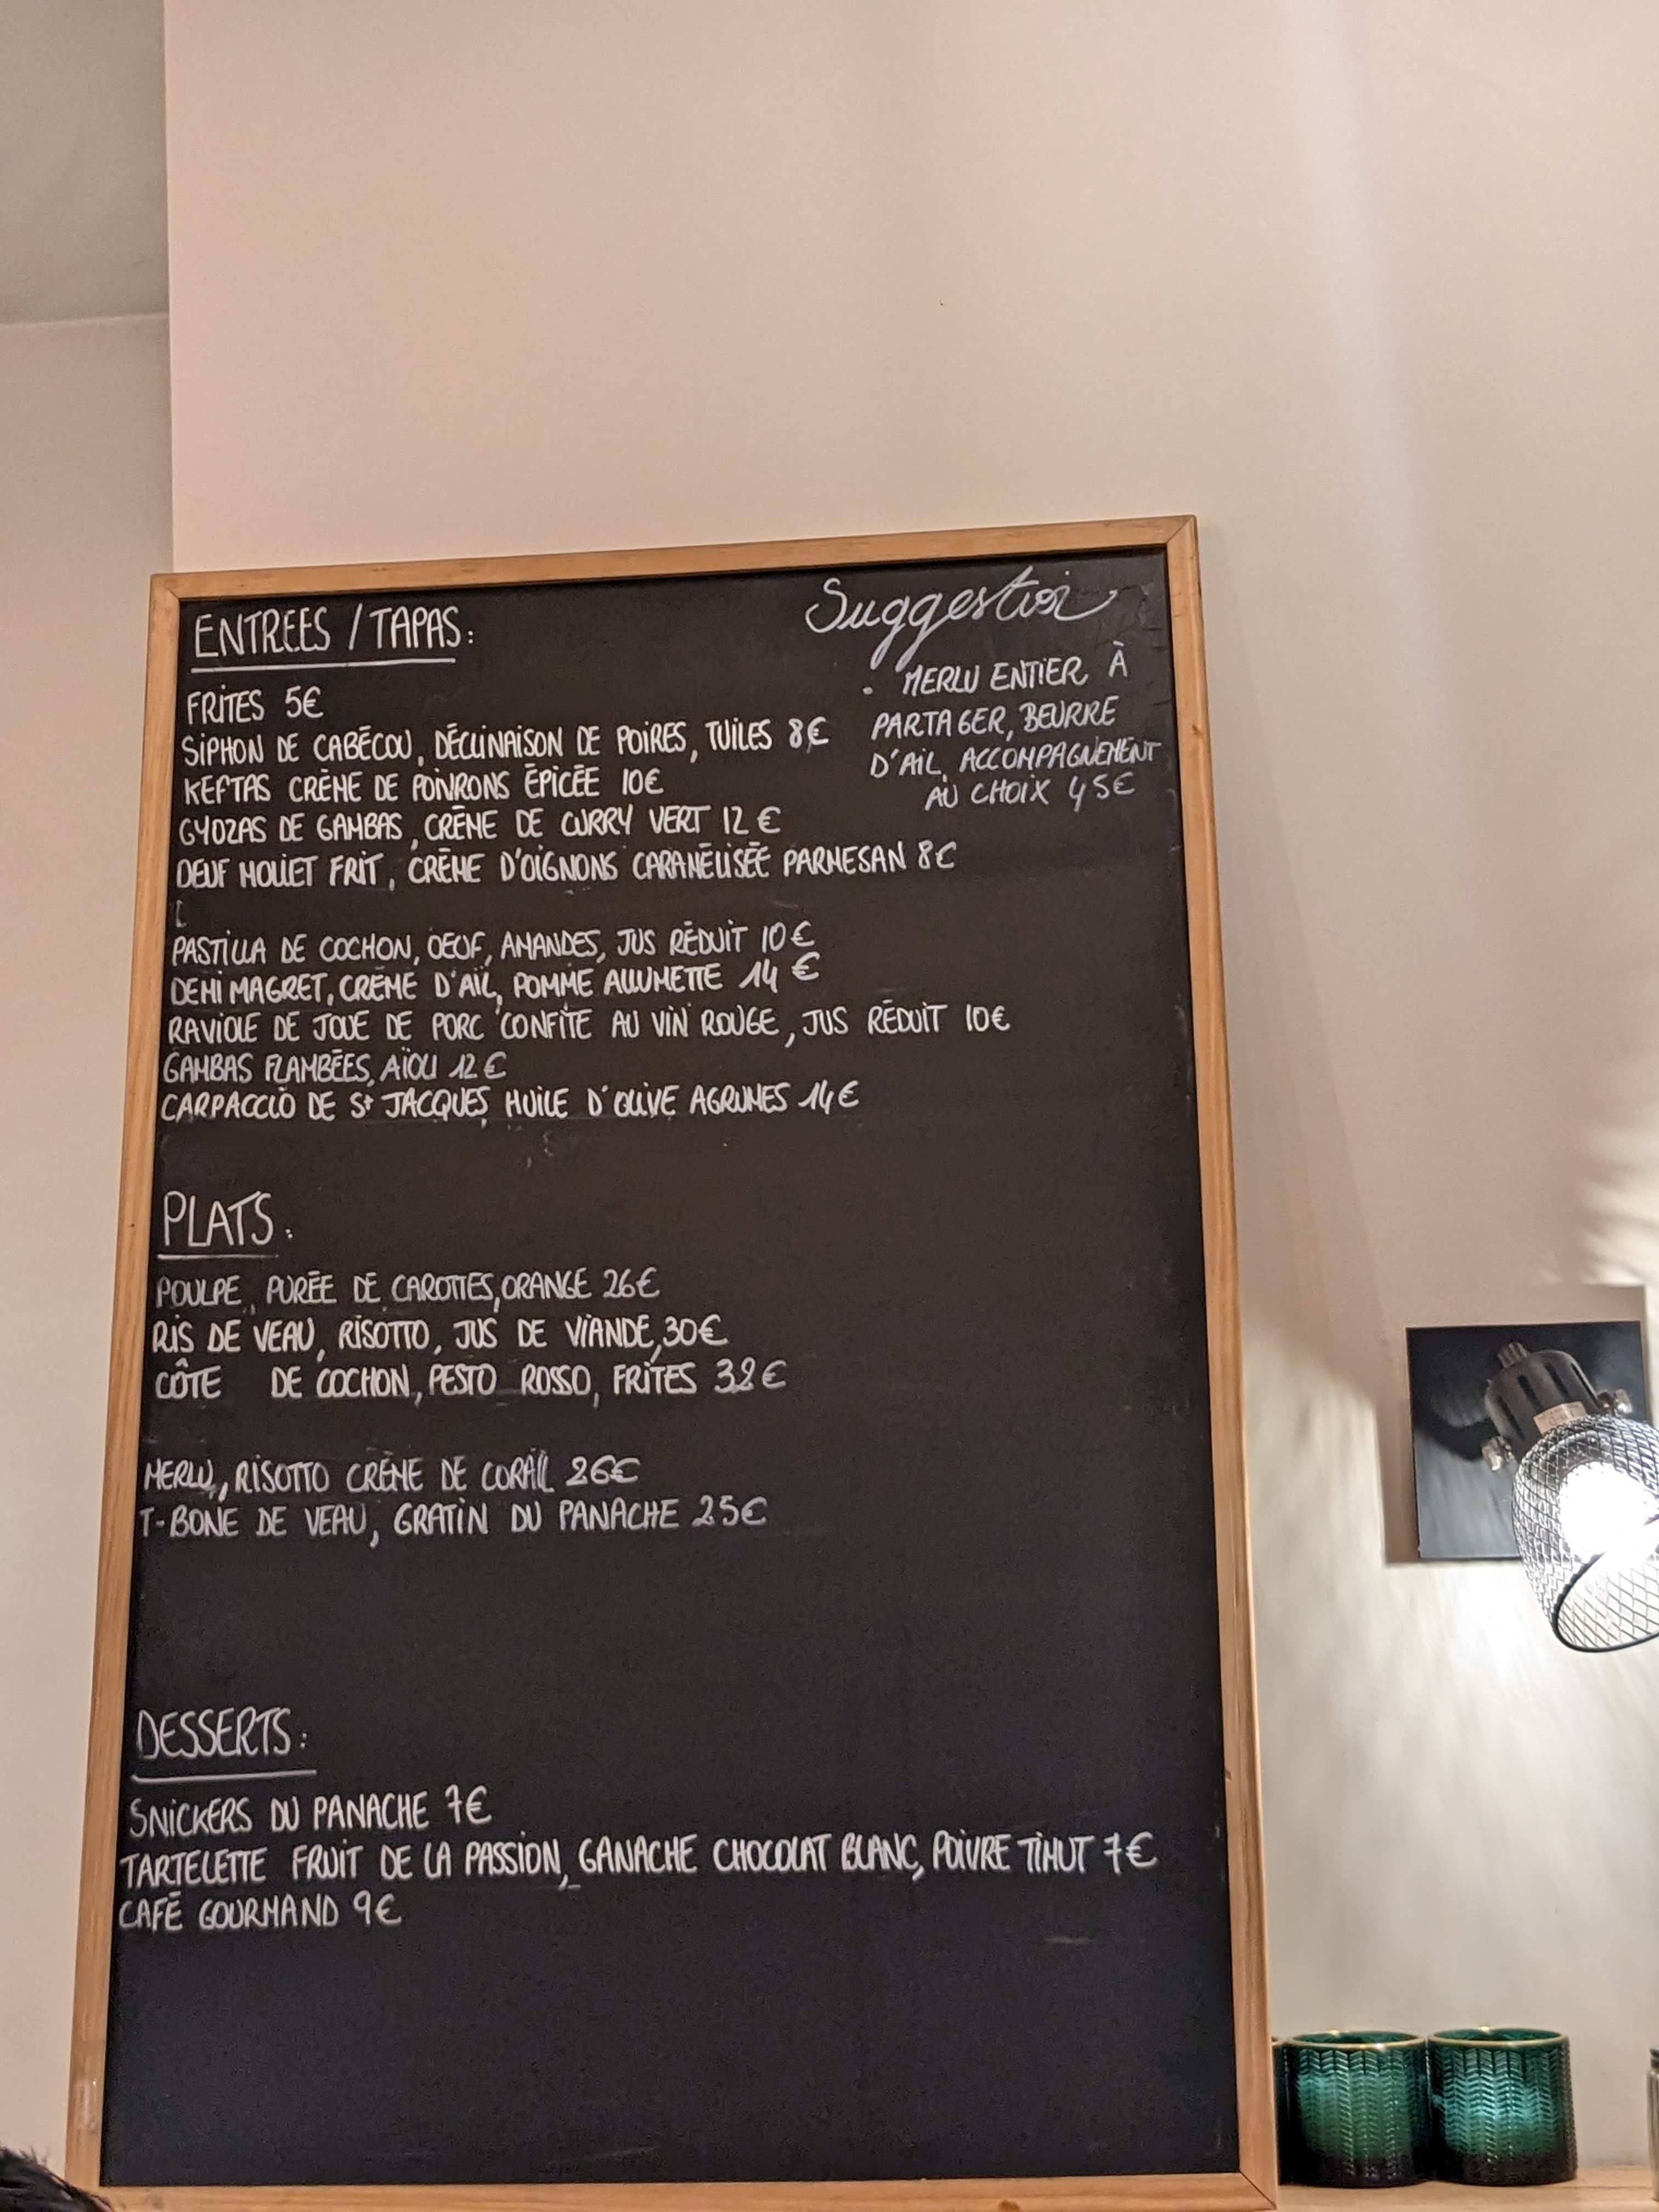 ENTREES / TAPAS:
FRITES 5€
SIPHON DE CABÉCOU, DÉCLINAISON DE POIRES, TUILES 8€
KEFTAS CRÈME DE POIVRONS ÉPICÉE 10€
GYOZAS DE GAMBAS, CRÈME DE CURRY VERT 12€
OEUF MOLLET FRIT, CRÈME D'OIGNONS CARAMÉLISÉE PARMESAN 8€
PASTILLA DE COCHON, OEUF, AMANDES, JUS RÉDUIT 10€
DEMI MAGRET, CRÈME D'AIL, POMME ALLUMETTE 14€
RAVIOLE DE JOUE DE PORC CONFITE AU VIN ROUGE, JUS RÉDUIT 10€
GAMBAS FLAMBÉES, AÏOLI 12€
CARPACCIO DE St JACQUES, HUILE D'OLIVE AGRUMES 14€
Suggestion
. MERLU ENTIER À
PARTAGER, BEURRE
D'AIL, ACCOMPAGNEMENT
AU CHOIX 45€
PLATS:
POULPE, PURÉE DE CAROTTES, ORANGE 26€
RIS DE VEAU, RISOTTO, JUS DE VIANDE, 30€
CÔTE DE COCHON, PESTO ROSSO, FRITES €
MERLU, RISOTTO CRÈME DE CORAIL 26€
T-BONE DE VEAU, GRATIN DU PANACHE 25€
DESSERTS:
SNICKERS DU PANACHE 7€
TARTELETTE FRUIT DE LA PASSION, GANACHE CHOCOLAT BLANC, POIVRE TIMUT 7€
CAFÉ GOURMAND 9€